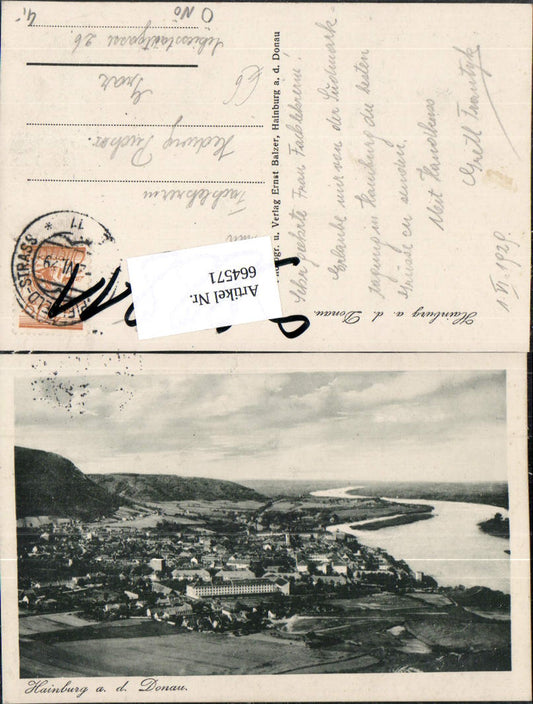 Hainburg a. d. Donau.
1. VI. 1929.
Sehr geehrte Frau Fachlehrerin!
Erlaube mir von der Südmark-
tagung in Hainburg die besten
Grüsse zu senden.
Mit Handkuss
Grettl
Photogr. u. Verlag Ernst Balzer, Hainburg a. d. Donau
Fachlehrerin
Hedwig
Graz
26
N.Ö.
4,-
11
VI. 29
STRASS
Artikel Nr.
664571
Hainburg a. d. Donau.